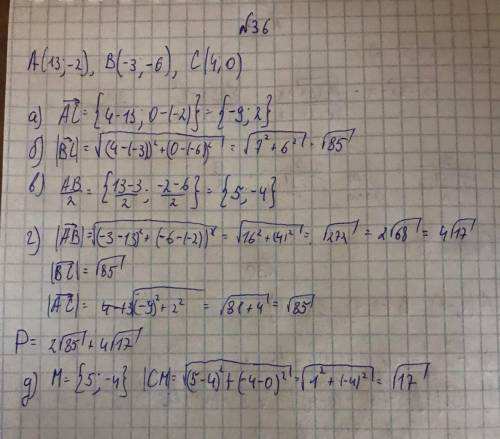 №36
A(13;-2), B(-3,-6), C(4,0)
а) AC = {4-13; 0-(-2)} = {-9; 2}
б) |BC| = √((4-(-3))²+(0-(-6)²) = √(7²+6²) = √85
в) AB/2 = {(13-3)/2; (-2-6)/2} = {5; -4}
г) |AB| = √((-3-13)²+(-6-(-2))² = √(16²+(4)²) = √272 = 2√68 = 4√17
|BC| = √85
|AC| = √((-9)²+2²) = √(81+4) = √85
P = 2√85 + 4√17
д) M = {5; -4} |CM = √((5-4)²+(-4-0)²) = √(1²+(-4)²) = √17